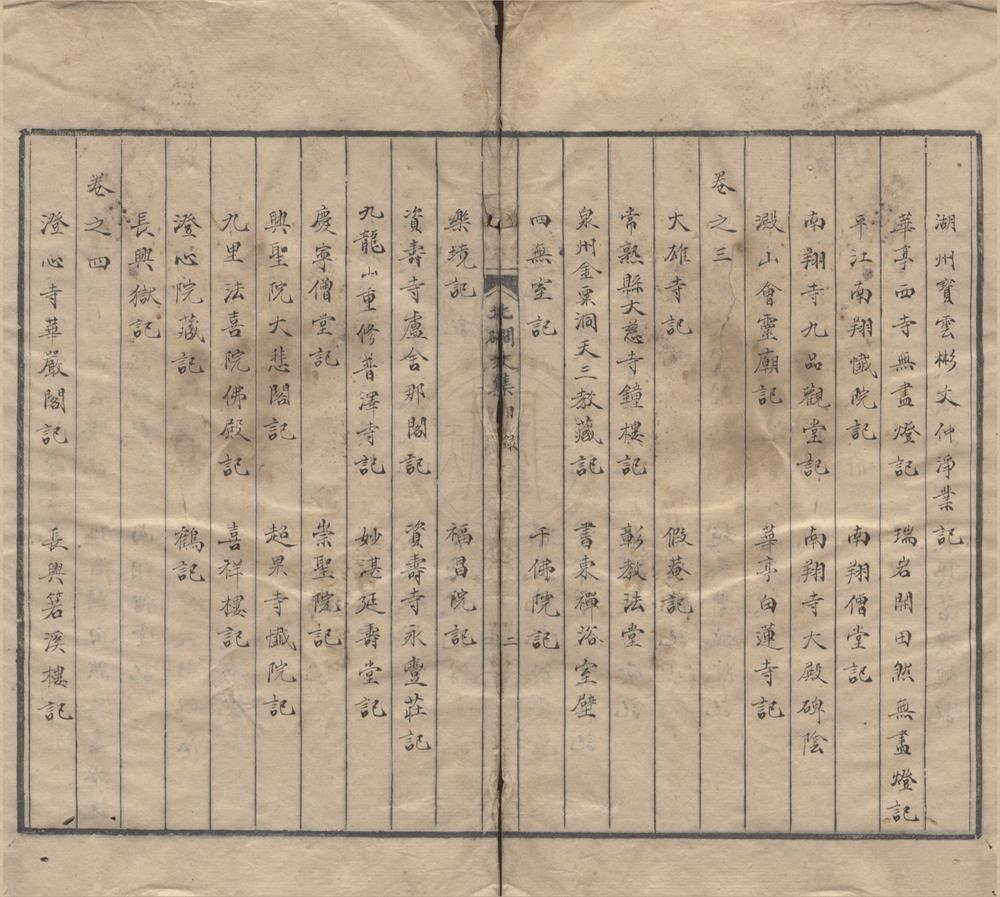 湖州寶雲彬文仲淨業記
華亭西寺無盡燈記 瑞岩開田然無盡燈記
平江南翔懺院記 南翔僧堂記
南翔寺九品觀堂記 南翔寺大殿碑陰
澱山會靈廟記 華亭白蓮寺記
卷之三
大雄寺記 假菴記
常熟縣大慈寺鐘樓記 彰教法堂
泉州金粟洞天三教藏記 書東禪浴室壁
四無室記 千佛院記
北磵文集 目錄 二
樂境記 福昌院記
資壽寺盧舍那閣記 資壽寺永豊莊記
九龍山重修普澤寺記 妙湛延壽堂記
慶寧僧堂記 崇聖院記
興聖院大悲閣記 超果寺懺院記
九里法喜院佛殿記 喜祥樓記
澄心院藏記 鶴記
長興獄記
卷之四
澄心寺華嚴閣記 長興箬溪樓記